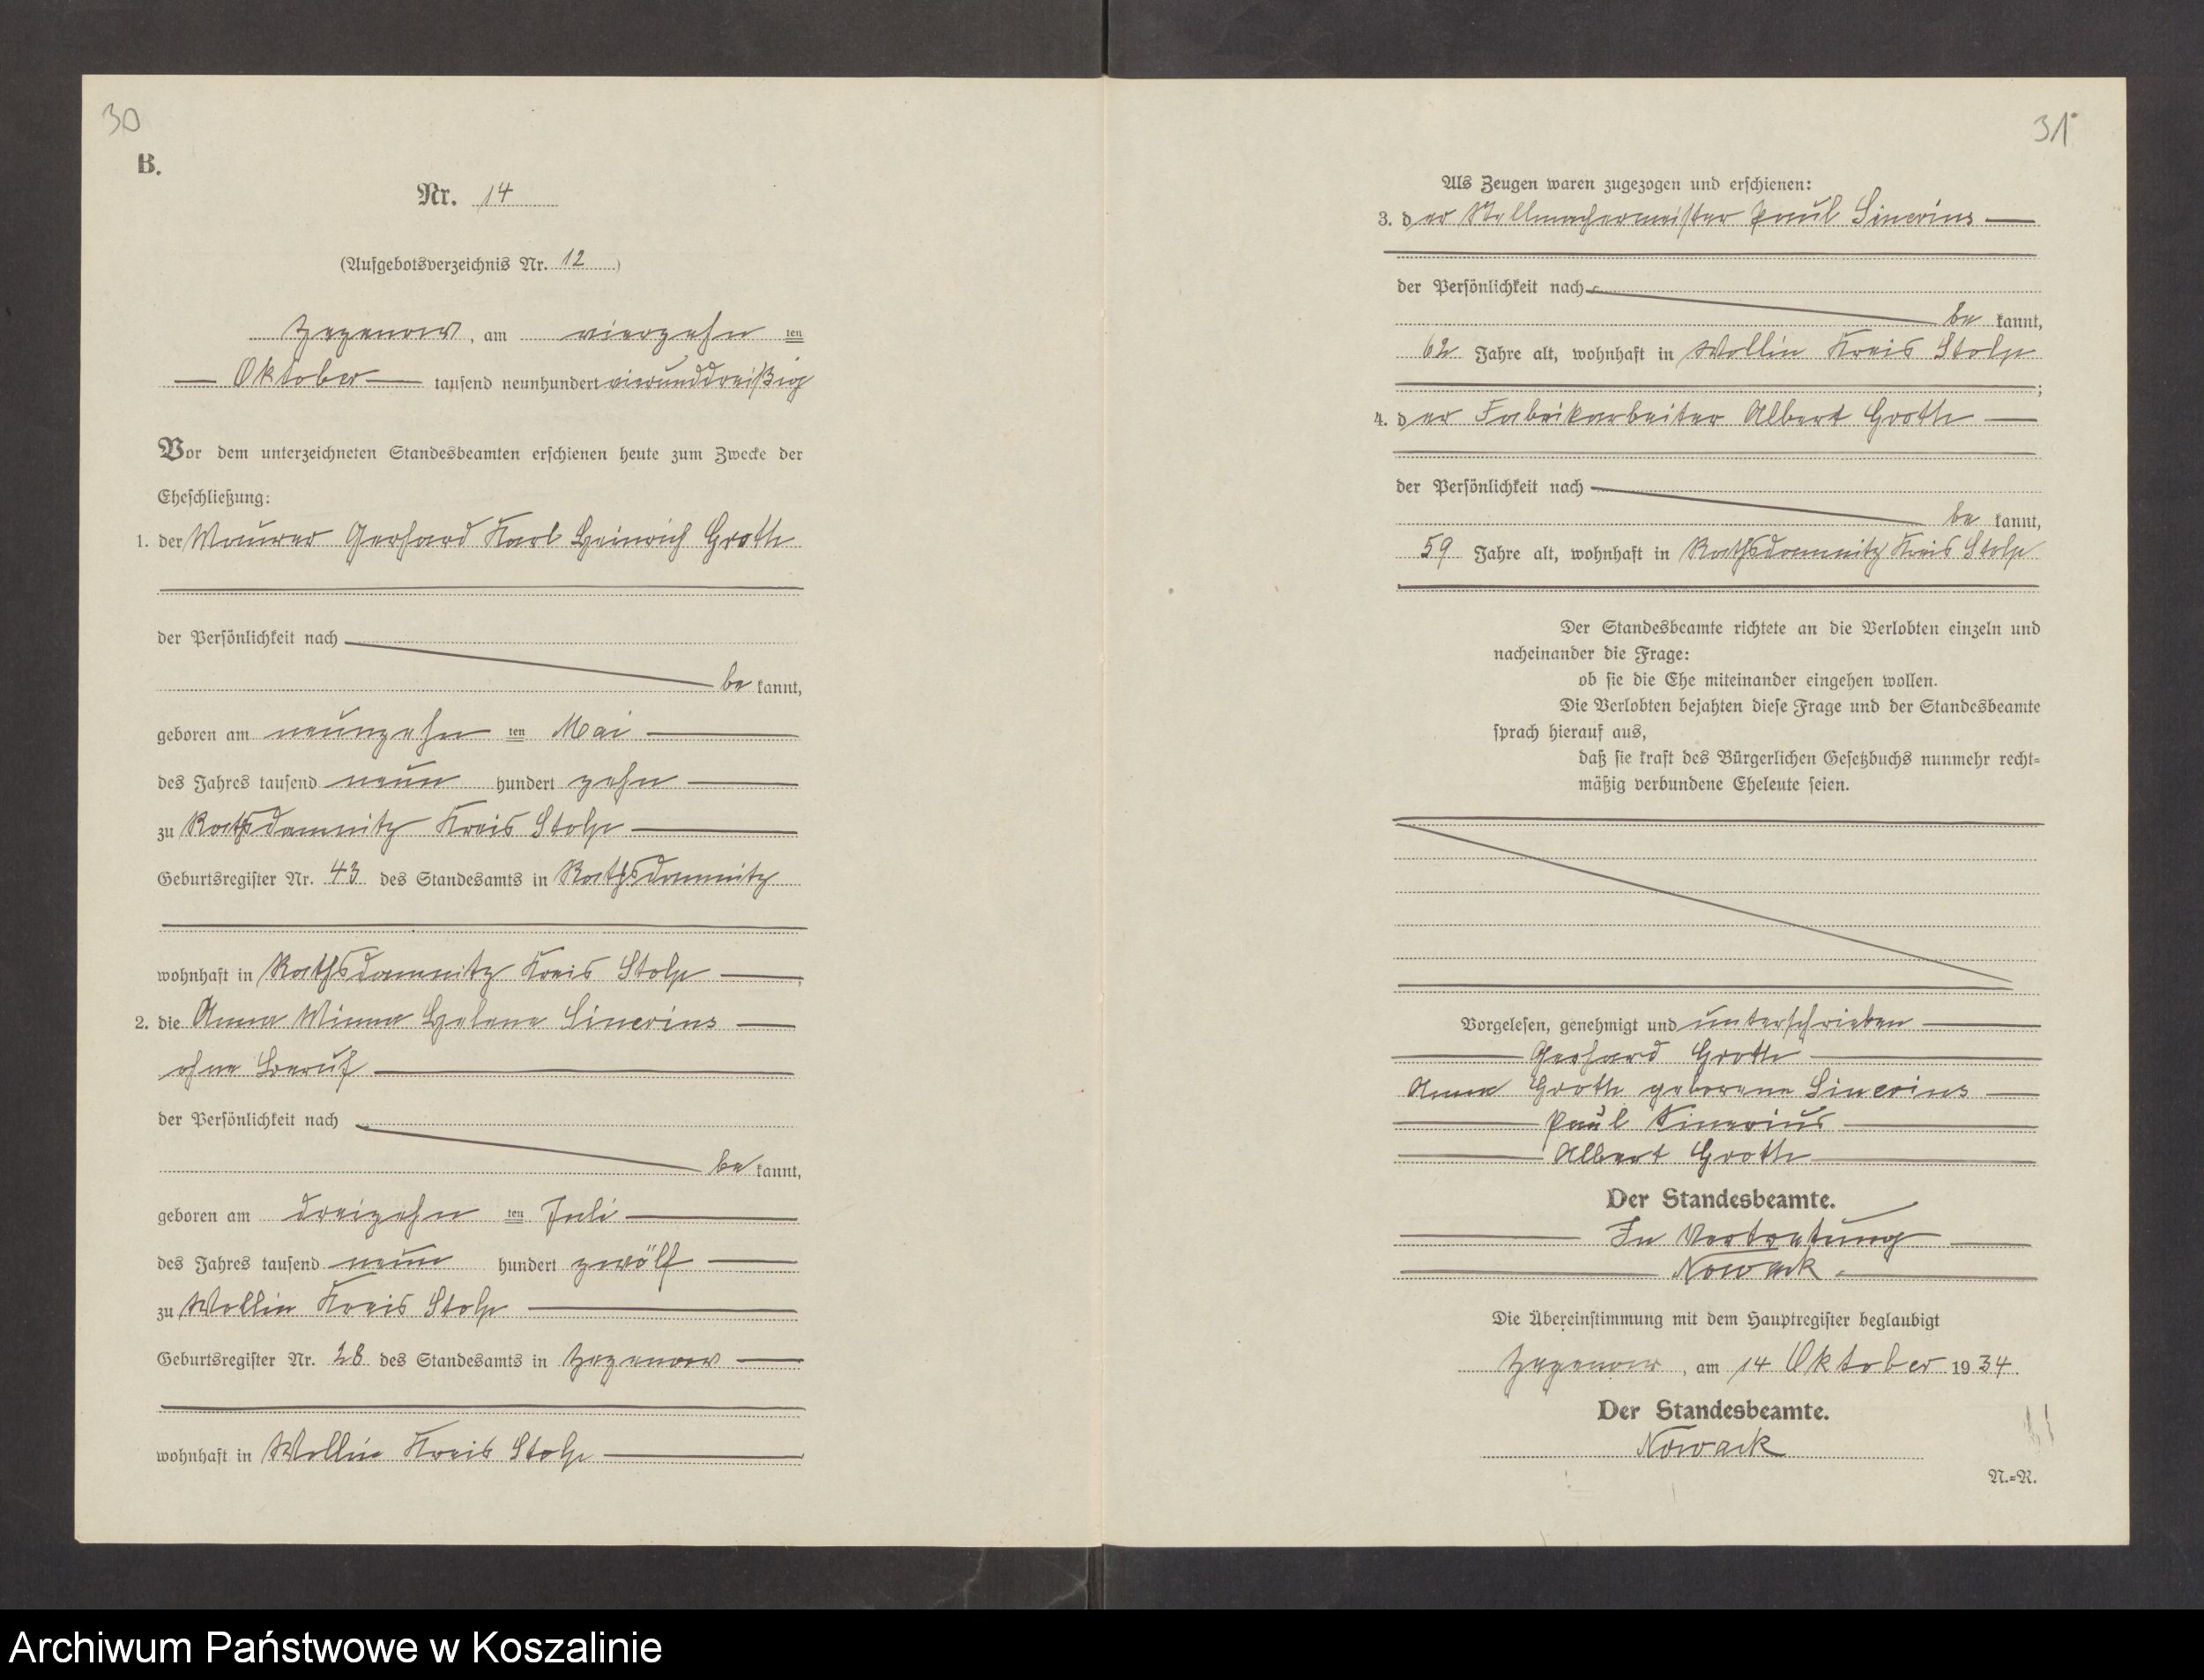 30
B.
Nr. 14
(Aufgebotsverzeichnis Nr. 12)
Zezenow, am vierzehn ten
Oktober tausend neunhundert vierunddreißig
Vor dem unterzeichneten Standesbeamten erschienen heute zum Zwecke der
Eheschließung:
1. der Maurer Gerhard Karl Heinrich Groth
der Persönlichkeit nach
be kannt,
geboren am neunzehn ten Mai
des Jahres tausend neun hundert zehn
zu Rathsdamnitz Kreis Stolp
Geburtsregister Nr. 43 des Standesamts in Rathsdamnitz
wohnhaft in Rathsdamnitz Kreis Stolp,
2. die Anna Minna Helene Sinerius
ohne Beruf
der Persönlichkeit nach
be kannt,
geboren am dreizehn ten Juli
des Jahres tausend neun hundert zwölf
zu Wollin Kreis Stolp
Geburtsregister Nr. 28 des Standesamts in Zezenow
wohnhaft in Wollin Kreis Stolp
31
Als Zeugen waren zugezogen und erschienen:
3. der Stellmachermeister Paul Sinerius
der Persönlichkeit nach
be kannt,
62 Jahre alt, wohnhaft in Wollin Kreis Stolp
;
4. der Fabrikarbeiter Albert Groth
der Persönlichkeit nach
be kannt,
59 Jahre alt, wohnhaft in Rathsdamnitz Kreis Stolp
Der Standesbeamte richtete an die Verlobten einzeln und
nacheinander die Frage:
ob sie die Ehe miteinander eingehen wollen.
Die Verlobten bejahten diese Frage und der Standesbeamte
sprach hierauf aus,
daß sie kraft des Bürgerlichen Gesetzbuchs nunmehr recht=
mäßig verbundene Eheleute seien.
Vorgelesen, genehmigt und unterschrieben
Gerhard Groth
Anna Groth geborene Sinerius
Paul Sinerius
Albert Groth
Der Standesbeamte.
In Vertretung
Nowack.
Die Übereinstimmung mit dem Hauptregister beglaubigt
Zezenow, am 14 Oktober 1934.
Der Standesbeamte.
Nowack
N.=R.
Archiwum Państwowe w Koszalinie